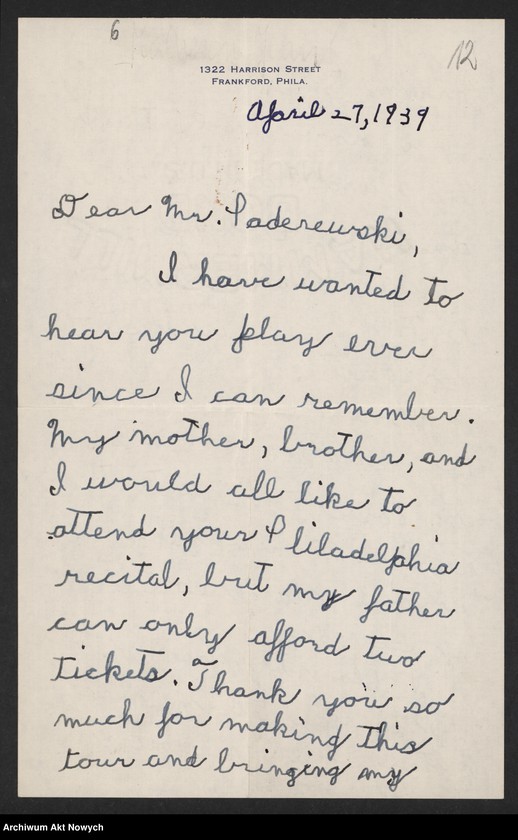 6
12
1322 HARRISON STREET
FRANKFORD, PHILA.
April 27, 1939
Dear Mr. Paderewski,
I have wanted to
hear you play ever
since I can remember.
My mother, brother, and
I would all like to
attend your Philadelphia
recital, but my father
can only afford two
tickets. Thank you so
much for making this
tour and bringing my
Archiwum Akt Nowych